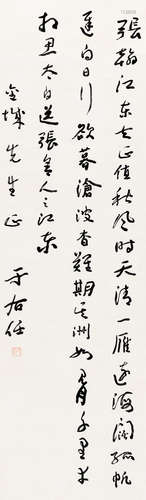 張翰江東去正值秋風時天清一雁遠海闊孤帆
遲白日行欲暮滄波杳難期吳洲如見月千里幸
相思太白送張舍人之江東
金城先生正
于右任